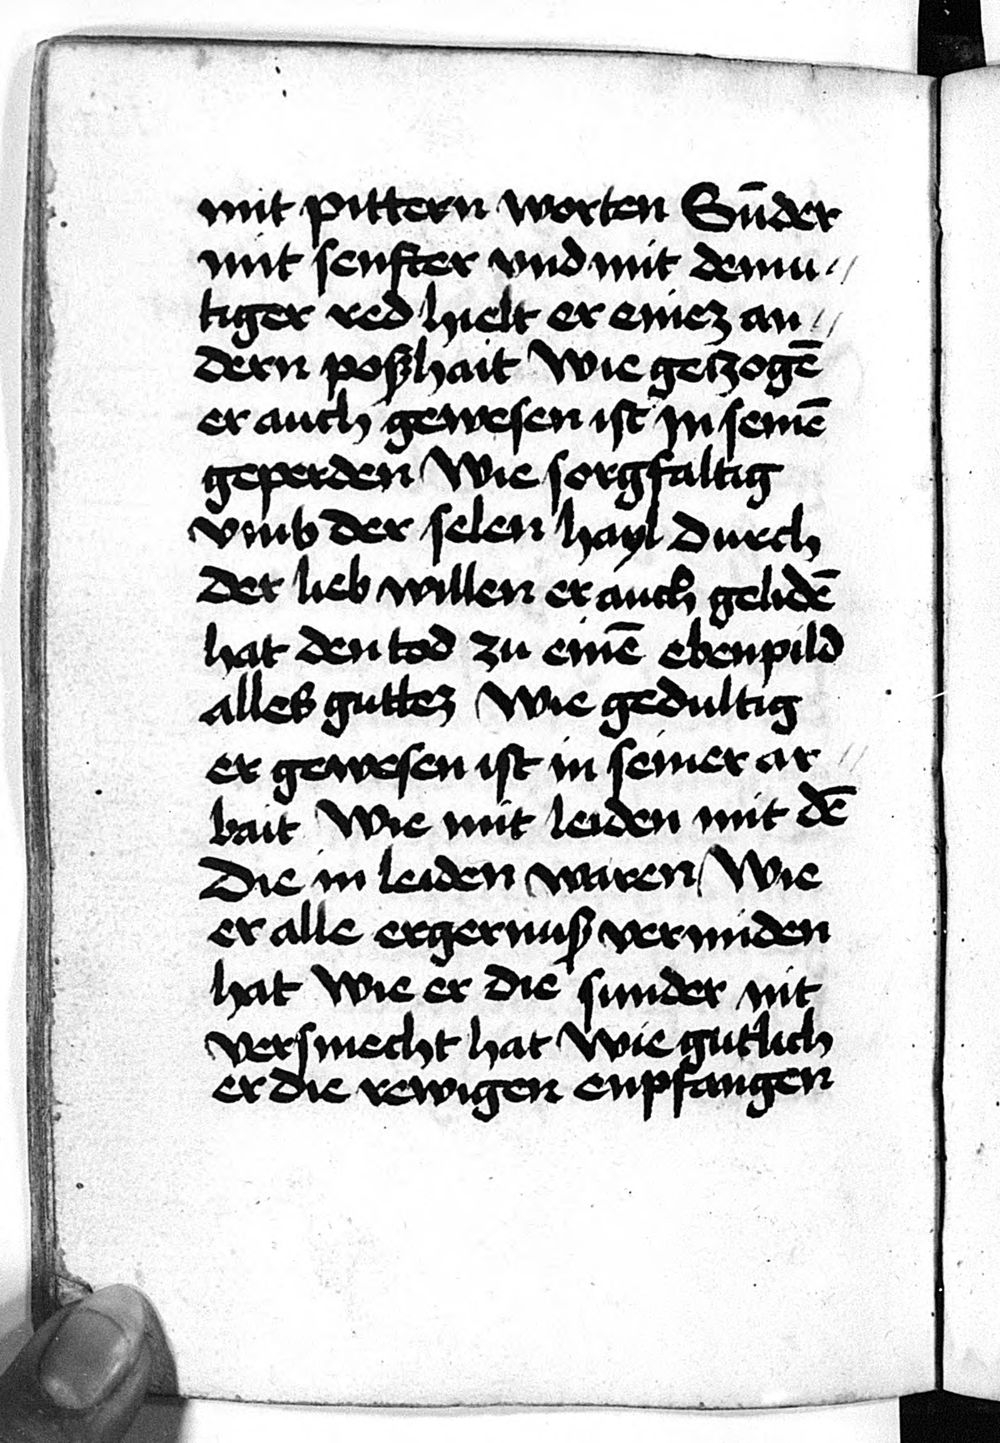 mit pittern worten Sūder
mit senfter vnd mit demu //
tiger red hielt er einez an //
dern poßhait Wie geczogē
er auch gewesen ist Jn seinē
geperden Wie sorgfaltig
vmb der selen hayl durch
der lieb willen er auch gelidē
hat den tod zu einē ebenpild
alles guttez Wie gedultig
er gewesen ist in seiner ar //
bait Wie mit leiden mit dē
Die in leiden waren Wie
er alle ergernuß vermiden
hat Wie er die sunder nit
versmecht hat Wie gutlich
er die rewigen enpfangen